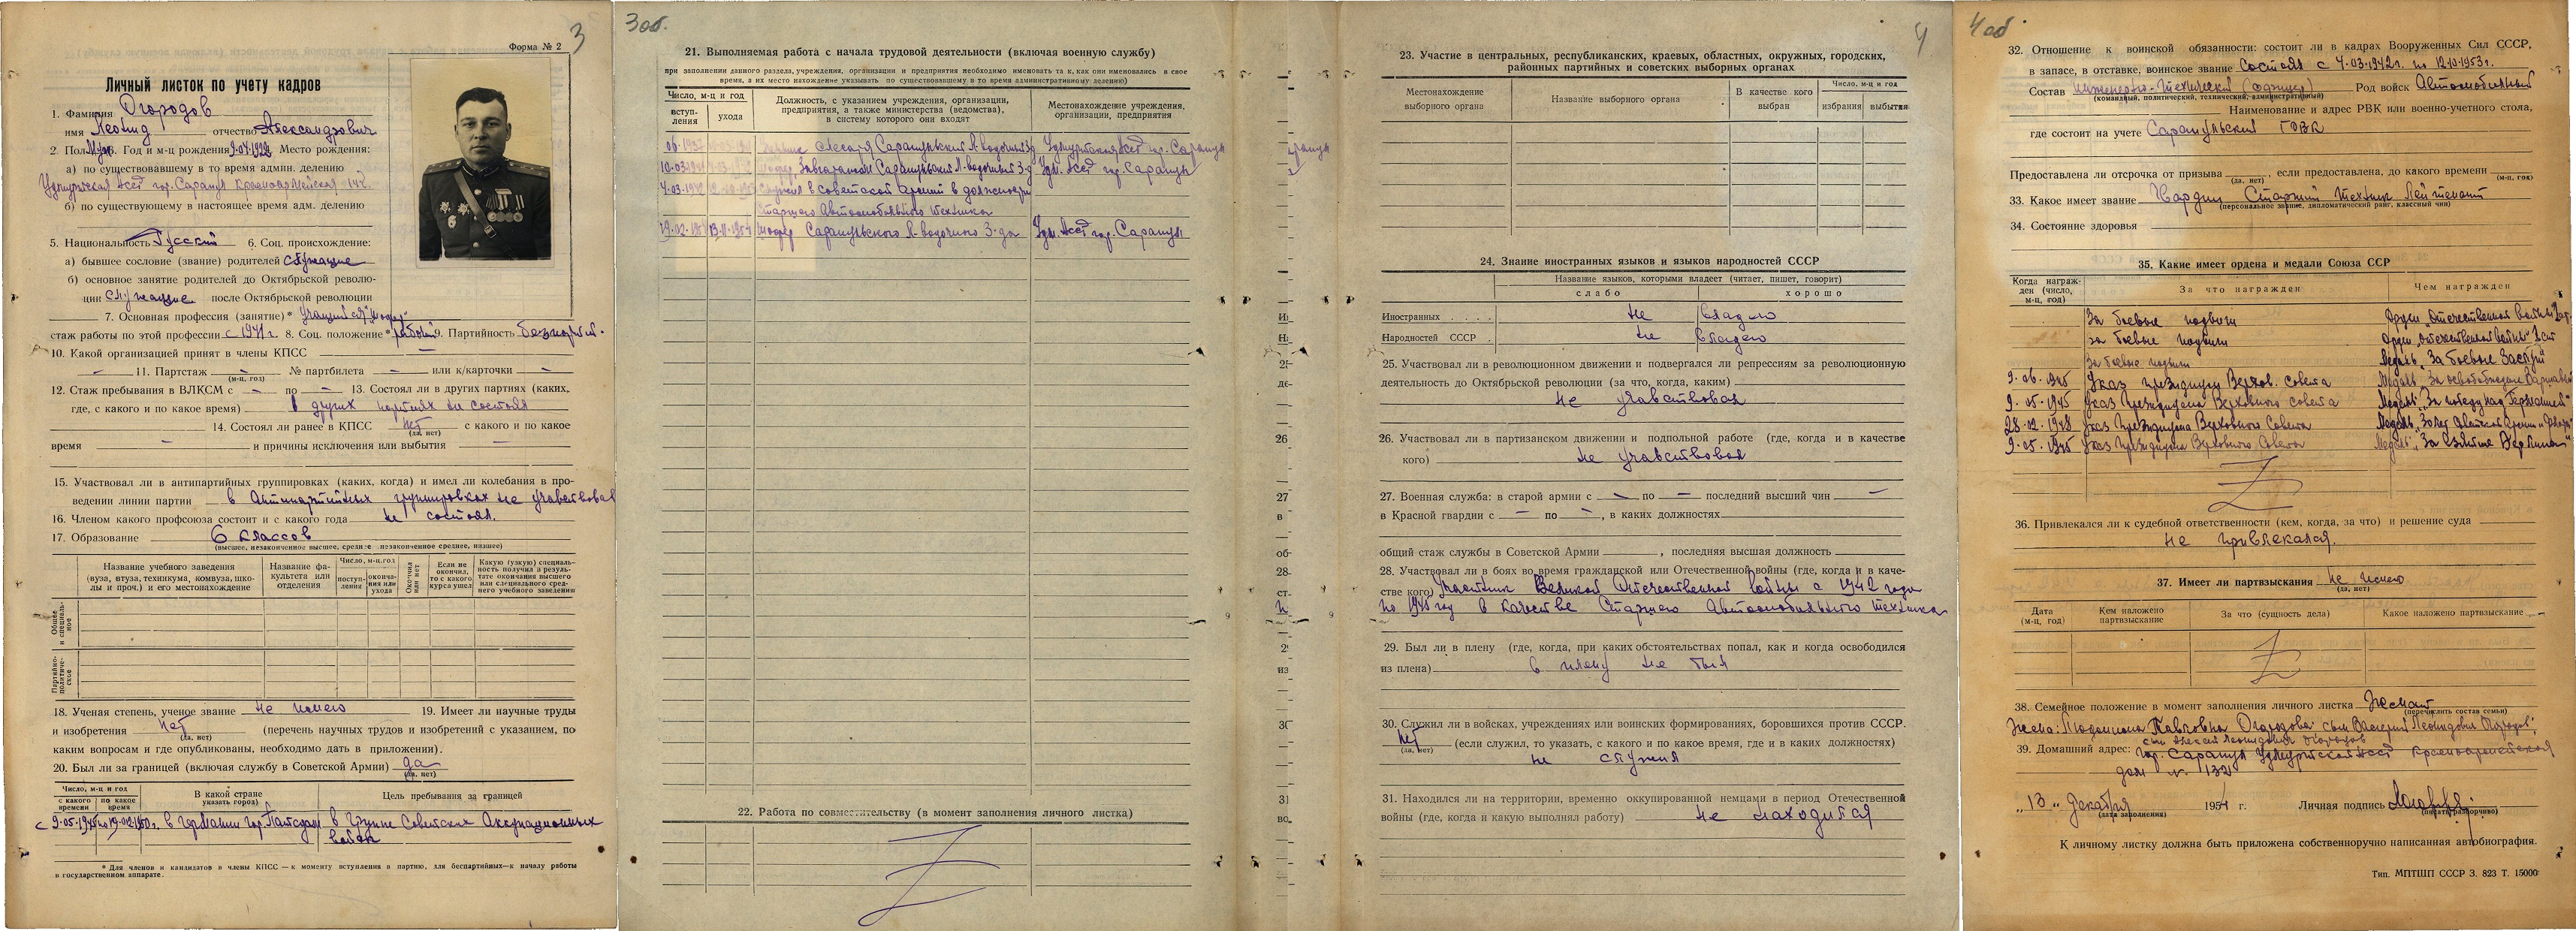 3
Форма № 2
Личный листок по учету кадров
1. Фамилия Огородов
имя Леонид отчество Александрович
2. Пол Муж 3. Год и м-ц рождения 9.04.1922 Место рождения:
а) по существовавшему в то время админ. делению
Удмуртская АССР гор. Сарапул Красноармейская 142.
б) по существующему в настоящее время адм. делению
5. Национальность Русский 6. Соц. происхождение:
а) бывшее сословие (звание) родителей служащие
б) основное занятие родителей до Октябрьской револю-
ции служащие после Октябрьской революции
7. Основная профессия (занятие)* учащийся "шофер"
стаж работы по этой профессии с 1941 г. 8. Соц. положение* рабочий 9. Партийность беспартий.
10. Какой организацией принят в члены КПСС —
— 11. Партстаж — № партбилета — или к/карточки —
(м-ц, год)
12. Стаж пребывания в ВЛКСМ с — по — 13. Состоял ли в других партиях (каких,
где, с какого и по какое время) в других партиях не состоял
14. Состоял ли ранее в КПСС нет с какого и по какое
(да, нет)
время — и причины исключения или выбытия —
15. Участвовал ли в антипартийных группировках (каких, когда) и имел ли колебания в про-
ведении линии партии в Антипартийных группировках не учавствовал
16. Членом какого профсоюза состоит и с какого года не состоял.
17. Образование 6 классов
(высшее, незаконченное высшее, среднее, незаконченное среднее, низшее)
Название учебного заведения (вуза, втуза, техникума, комвуза, шко-лы и проч.) и его местонахождение
Название фа-культета или отделения
Число, м-ц, год
поступ-ления
оконча-ния или ухода
Окончил или нет
Если не окончил, то с какого курса ушел
Какую (узкую) специаль-ность получил в резуль-тате окончания высшего или специального сред-него учебного заведения
Общее и специаль-ное
Партийно-политиче-ское
18. Ученая степень, ученое звание не имею 19. Имеет ли научные труды
и изобретения нет (перечень научных трудов и изобретений с указанием, по
(да, нет)
каким вопросам и где опубликованы, необходимо дать в приложении).
20. Был ли за границей (включая службу в Советской Армии) да
(да, нет)
Число, м-ц и год
с какого времени
по какое время
В какой стране
указать город)
Цель пребывания за границей
с 9.05.1945 по 19.02.1950г. в Германии гор. Патсдам в группе Советских Аккупационных
войск
* Для членов и кандидатов в члены КПСС — к моменту вступления в партию, для беспартийных—к началу работы
в государственном аппарате.
3 об.
21. Выполняемая работа с начала трудовой деятельности (включая военную службу)
при заполнении данного раздела, учреждения, организации и предприятия необходимо именовать так, как они именовались в свое
время, а их место нахождение указывать по существовавшему в то время административному делению)
Число, м-ц и год
вступ-ления
ухода
Должность, с указанием учреждения, организации,
предприятия, а также министерства (ведомства),
в систему которого они входят
Местонахождение учреждения,
организации, предприятия
слесаря Сарапульский Л-водочный З-д Удмуртская АССР гор. Сарапул
Завгаражом Сарапульский Л-водочный З-д Удм. АССР гор. Сарапул
Служил в советской армии в должности
Старшего Автомобильного техника
шофер Сарапульского Л-водочного З-да Удм. АССР гор. Сарапул
22. Работа по совместительству (в момент заполнения личного листка)
4
23. Участие в центральных, республиканских, краевых, областных, окружных, городских,
районных партийных и советских выборных органах
Местонахождение
выборного органа
Название выборного органа
В качестве кого
выбран
Число, м-ц и год
избрания
выбытия
24. Знание иностранных языков и языков народностей СССР
Название языков, которыми владеет (читает, пишет, говорит)
слабо хорошо
Иностранных . . . . не владею
Народностей СССР . не владею
25. Участвовал ли в революционном движении и подвергался ли репрессиям за революционную
деятельность до Октябрьской революции (за что, когда, каким)
не учавствовал
26. Участвовал ли в партизанском движении и подпольной работе (где, когда и в качестве
кого) не учавствовал
27. Военная служба: в старой армии с — по — последний высший чин —
в Красной гвардии с — по —, в каких должностях
общий стаж службы в Советской Армии , последняя высшая должность
28. Участвовал ли в боях во время гражданской или Отечественной войны (где, когда и в каче-
стве кого) Участник Великой Отечественной войны с 1942 года
по 1945 год в качестве Старшего Автомобильного техника
29. Был ли в плену (где, когда, при каких обстоятельствах попал, как и когда освободился
из плена) в плену не был
30. Служил ли в войсках, учреждениях или воинских формированиях, боровшихся против СССР.
нет (если служил, то указать, с какого и по какое время, где и в каких должностях)
(да, нет)
не служил
31. Находился ли на территории, временно оккупированной немцами в период Отечественной
войны (где, когда и какую выполнял работу) не находился
4 об
32. Отношение к воинской обязанности: состоит ли в кадрах Вооруженных Сил СССР,
в запасе, в отставке, воинское звание Состоял с 4.03.1942г. по 12.10.1953г.
Состав инженерно-технический (офицер) Род войск Автомобильный
(командный, политический, технический, административный)
Наименование и адрес РВК или военно-учетного стола,
где состоит на учете Сарапульский ГВК
Предоставлена ли отсрочка от призыва , если предоставлена, до какого времени
(да, нет) (м-ц, год)
33. Какое имеет звание Старший техник Лейтенант
(персональное звание, дипломатический ранг, классный чин)
34. Состояние здоровья
35. Какие имеет ордена и медали Союза ССР
Когда награж-ден (число, м-ц, год)
За что награжден
Чем награжден
За боевые подвиги Орден „Отечественной войны" 2 ст.
за боевые подвиги Орден „отечественной войны" 2 ст
За боевые подвиги Медаль „За боевые Заслуги"
9.06.1945 Указ президиума Верхов. совета Медаль „За освобождение Варшавы"
9.05.1945 Указ Президиума Верховного совета Медаль „За победу над Германией"
28.02.1948 Указ Президиума Верховного Совета
9.05.1945 Указ Президиума Верховного Совета Медаль „За взятие Берлина"
36. Привлекался ли к судебной ответственности (кем, когда, за что) и решение суда
не привлекался.
37. Имеет ли партвзыскания не имею
(да, нет)
Дата
(м-ц, год)
Кем наложено
партвзыскание
За что (сущность дела)
Какое наложено партвзыскание
38. Семейное положение в момент заполнения личного листка Женат
(перечислить состав семьи)
Жена: Людмила Павловна Огородова сын Валерий Леонидович Огородов,
сын Алексей Леонидович Огородов
39. Домашний адрес: гор. Сарапул Удмуртской АССР Красноармейская
дом № 132
„13" декабря 1954 г. Личная подпись
(дата заполнения) (писать разборчиво)
К личному листку должна быть приложена собственноручно написанная автобиография.
Тип. МПТШП СССР З. 823 Т. 15000